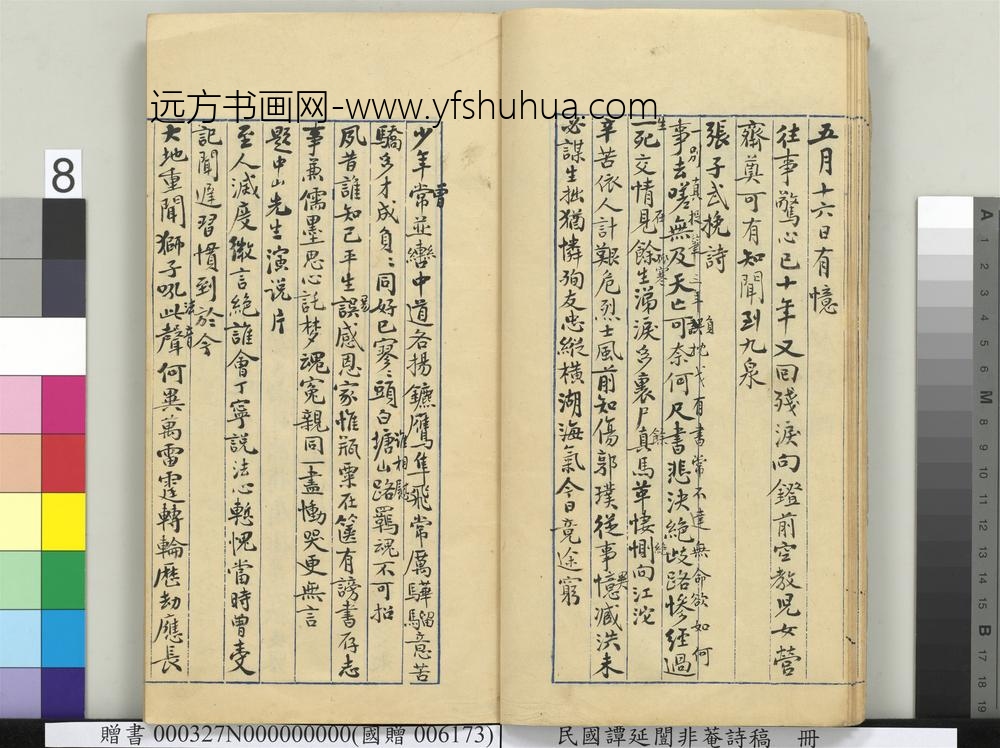 远方书画网-www.yfshuhua.com
五月十六日有憶
往事驚心已十年又回殘淚向鐙前空教兒女營
齋奠可有知聞到九泉
張子武挽詩
一別真提筆三年誤枕戈有書常不達無命欲如何
自
事去嗟無及天亡可奈何尺書悲決絕歧路慘經過
生
死交情見餘生涕淚多裹尸真馬革悽惻向江沱
存
寒
餘
絕
辛苦依人計艱危烈士風前知傷郭璞從事憶臧洪未
必謀生拙猶憐殉友忠縱橫湖海氣今日竟途窮
少年常並轡中道各揚鑣鷹隼飛常厲驊騮意苦
曾
驕多才成負負同好已寥寥頭白塘山路羈魂不可招
誰相
夙昔誰知己平生誤感恩家惟瓶粟在篋有謗書存志
易
事兼儒墨思心託夢魂冤親同一盡慟哭更無言
題中山先生演说片
至人滅度微言絕誰會丁寧説法心慙愧當時曾袤
記聞遲習慣到於今
大地重聞獅子吼此聲何異萬雷霆轉輪歷劫應長
法音
8
A 1 2 3 4 5 6 M 8 9 10 11 12 13 14 15 B 17 18 19
贈書 000327N000000000(國贈 006173)
民國譚延闓非菴詩稿 冊